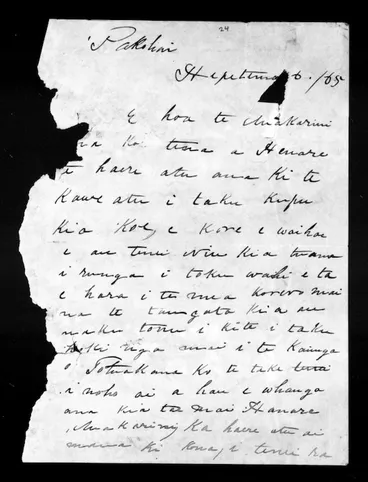 24
Pakohai
Hepetema 6. /65
E hoa te Makarini
na ko tena a Henare
te haere atu ana ki te
kawe atu i taku kupu
kia koe, e kore e waihoe
e au tenei
i runga i toku wahi e ta
e hara i te mea korero mai
na te tangata kia au
naku tonu i kite i taku
hokinga mai i te kainga
o ko te take tenei
i noho ai a hau e whanga
ana kia tae mai Henare
Makarini, ka haere atu ai
ki kona, e tenei ka